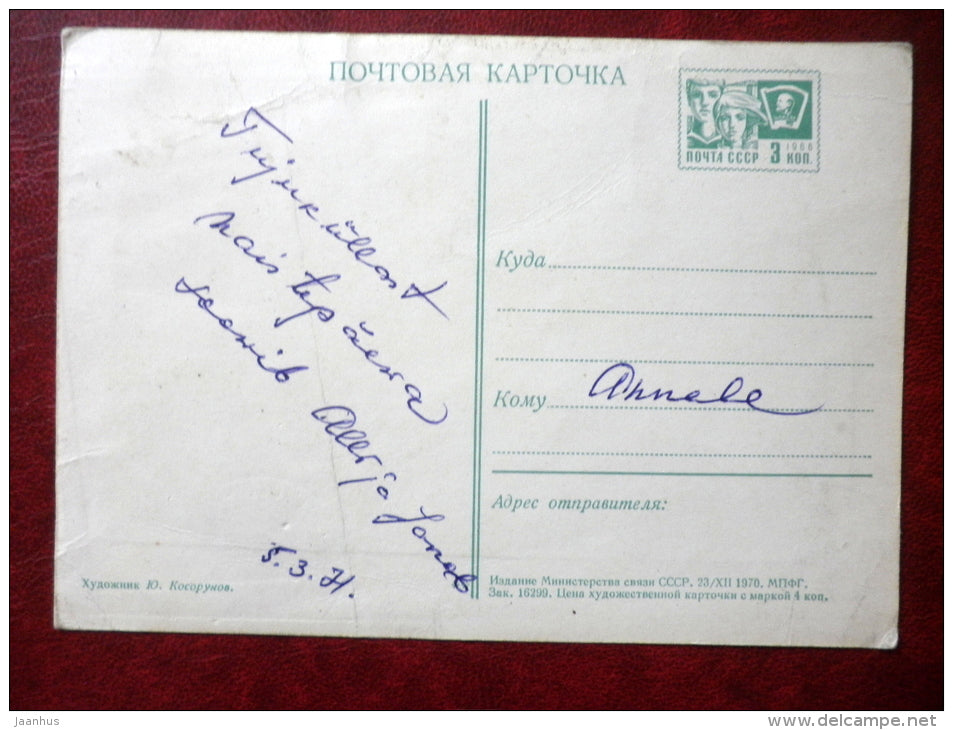 ПОЧТОВАЯ КАРТОЧКА
1966
ПОЧТА СССР 3 КОП.
naistepäeva
soovib
5.3.71.
Куда
Кому Annele
Адрес отправителя:
Художник Ю. Косоруков.
Издание Министерства связи СССР. 23/XII 1970. МПФГ.
Зак. 16299. Цена художественной карточки с маркой 4 коп.
jaanhus
www.delcampe.net